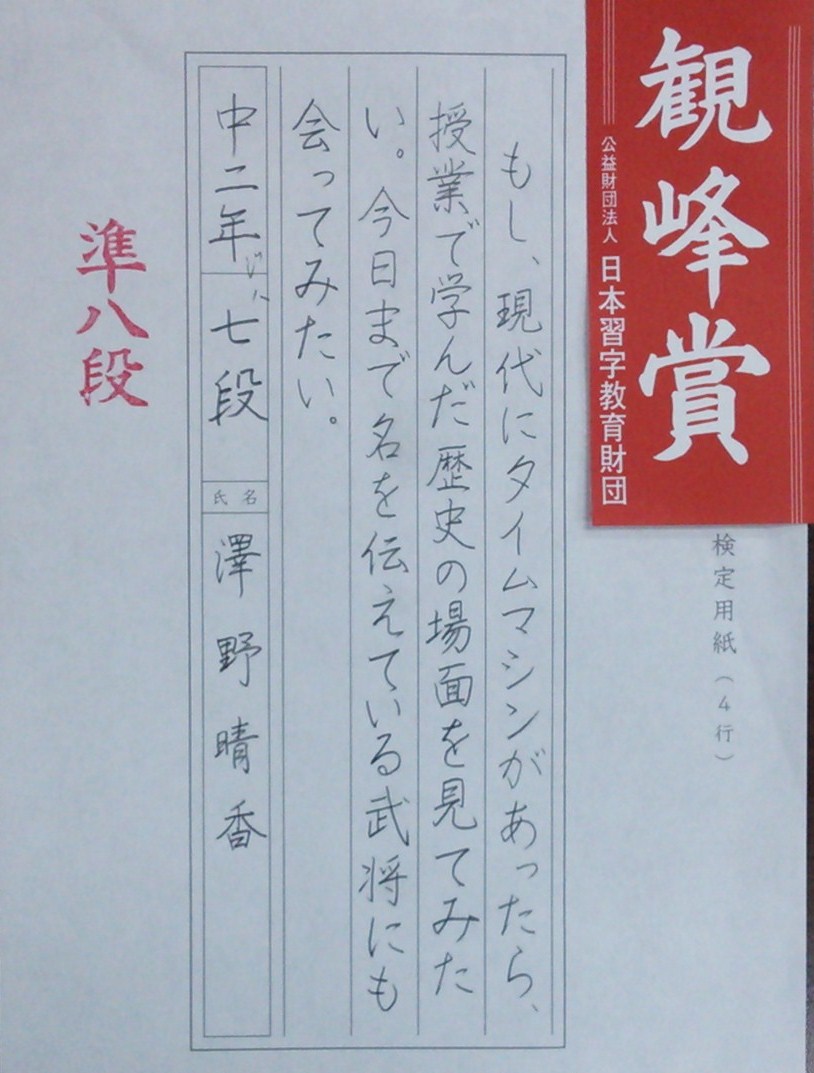 観峰賞
公益財団法人 日本習字教育財団
検定用紙(4行)
もし、現代にタイムマシンがあったら、
授業で学んだ歴史の場面を見てみた
い。今日まで名を伝えている武将にも
会ってみたい。
中二年 七段
氏名
澤野晴香
準八段